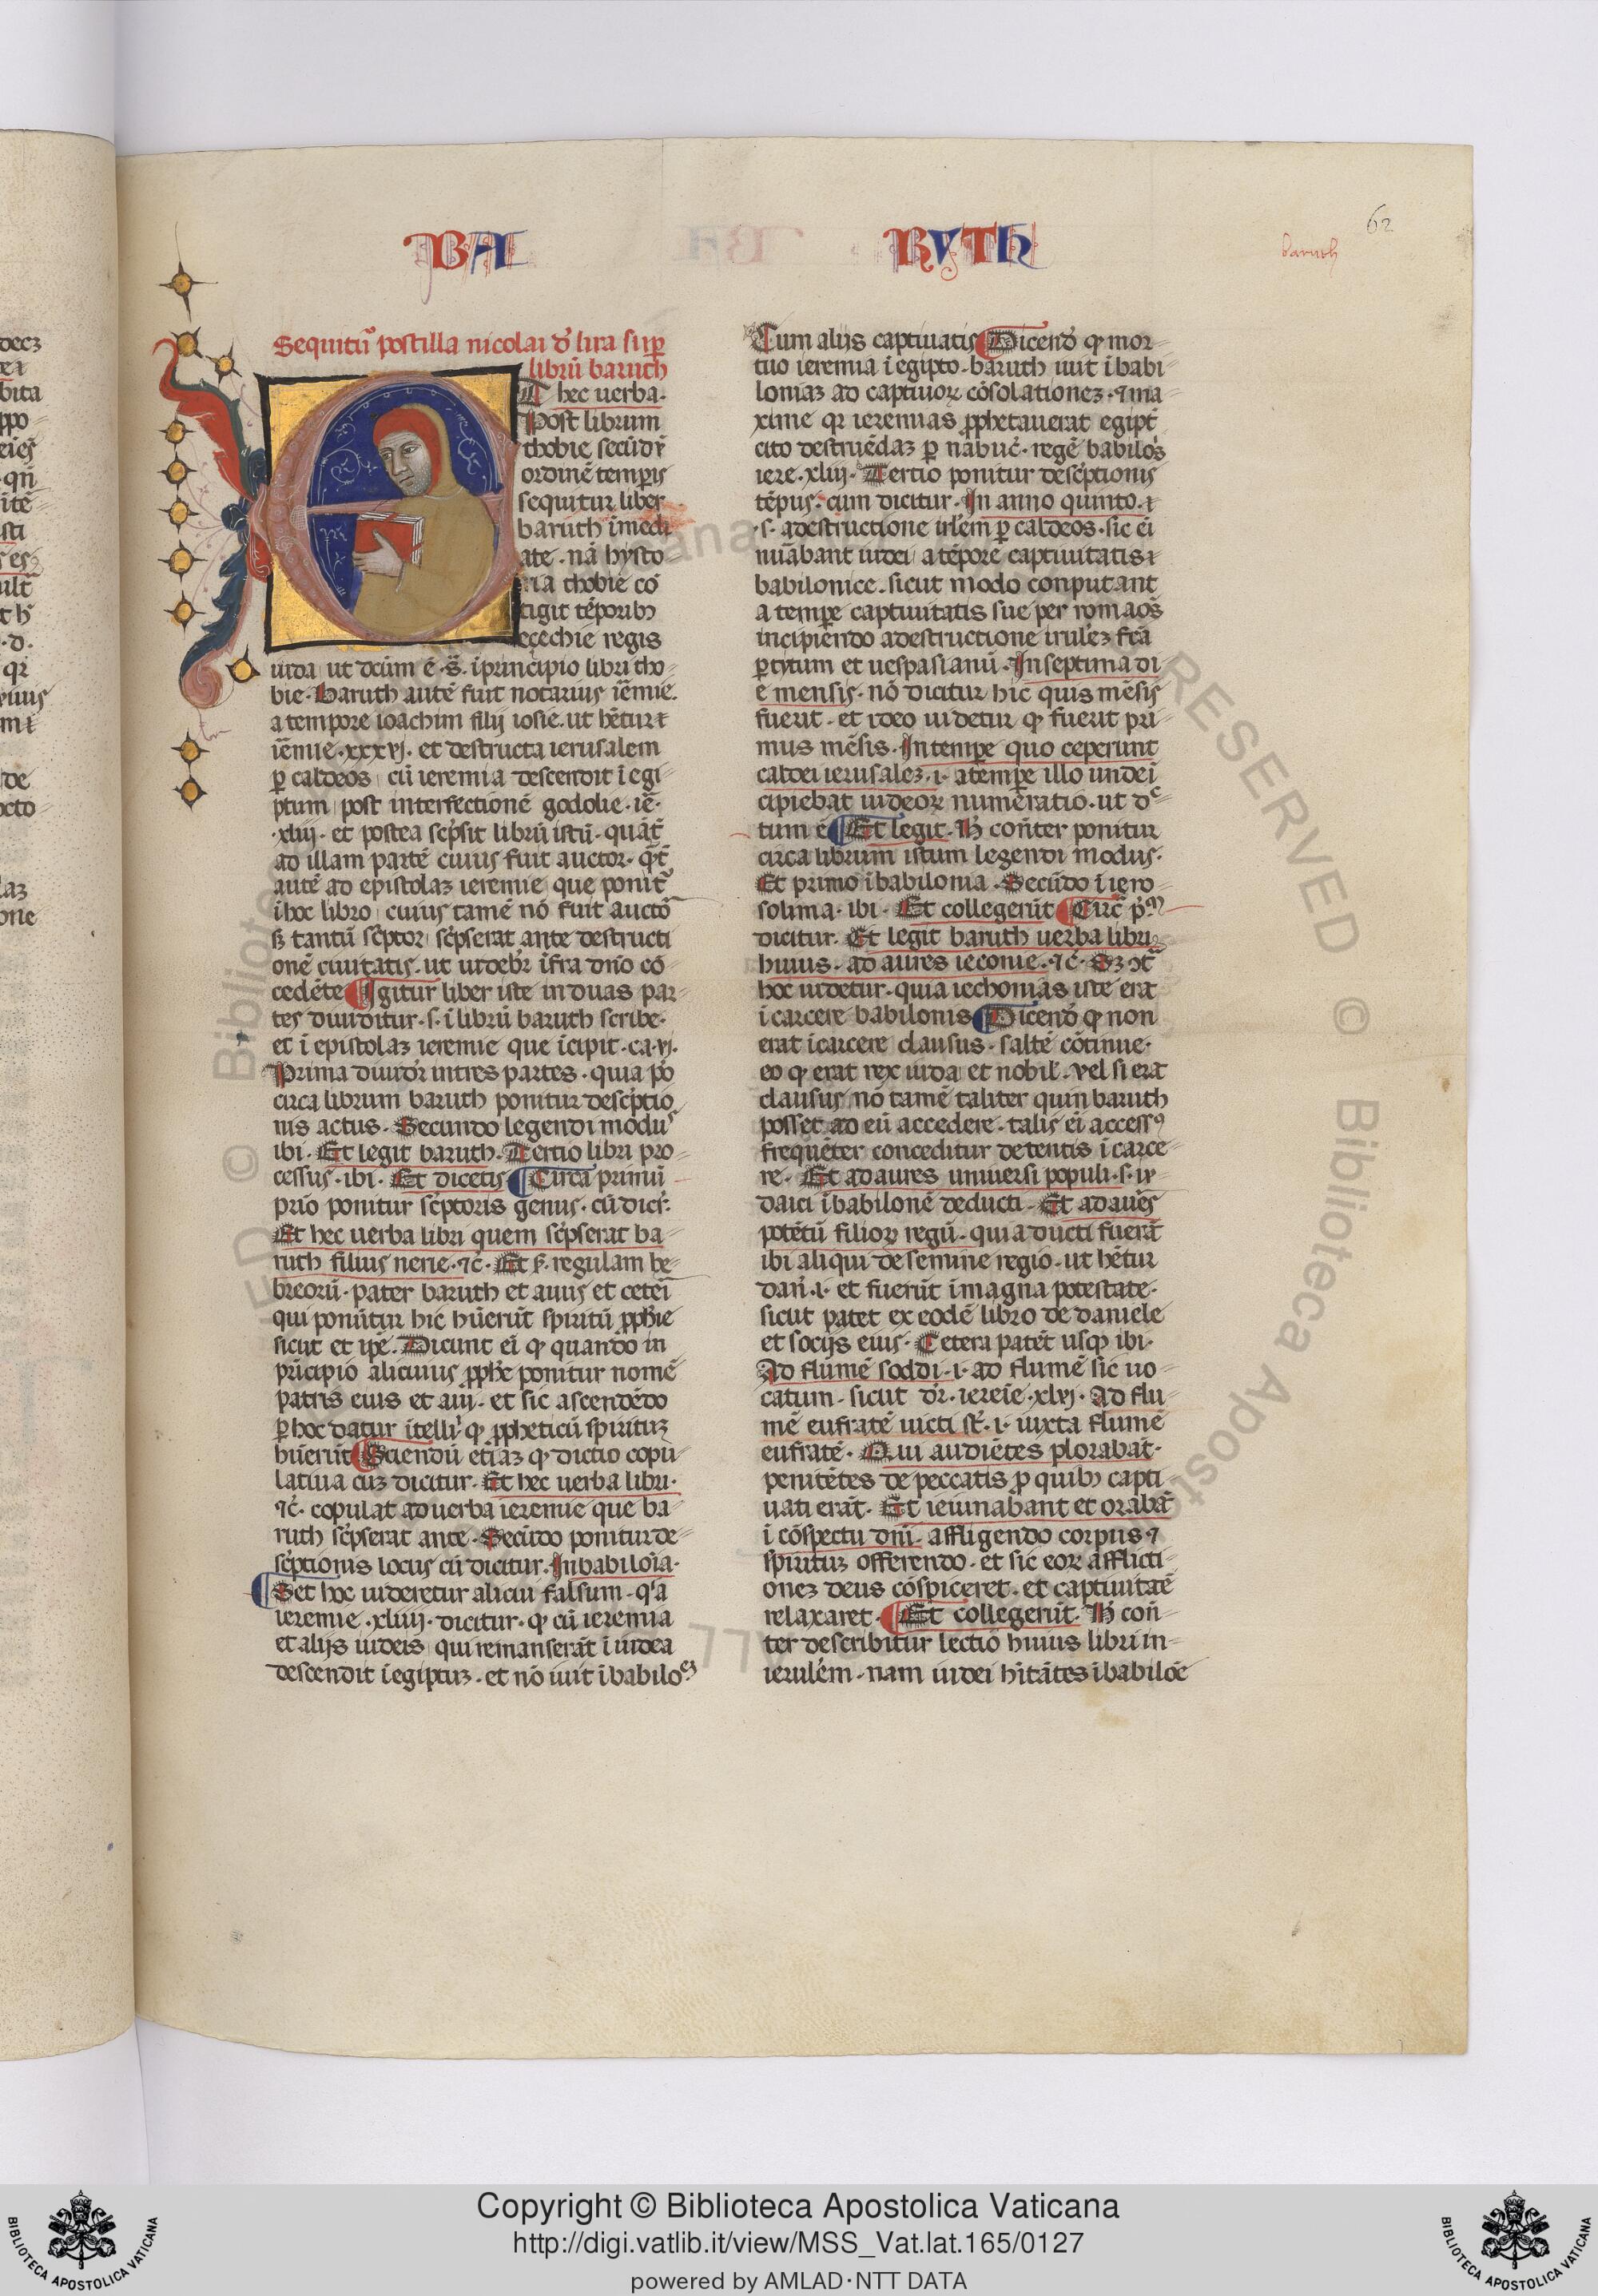 BA RVTH
62
baruth
Sequitũ postilla nicolai đ lira sup̱
librũ baruth
Et hec uerba.
Post librum
thobie secũdũ
ordinẽ temp̱is
sequitur liber
baruth imedi
ate. nã hysto
ria thobie cõ
tigit tẽporibꝫ
ecechie regis
iuda ut dcũm ẽ. s̃. i principio libri tho
bie. Baruth autẽ fuit notarius iẽmie.
a tempore ioachim filij iosie. ut hẽtur
iẽmie. xxxvj. et destructa ierusalem
p̱ caldeos cũ ieremia descendit i egi
ptum post interfectionẽ godolie. iẽ.
.xliij. et postea scp̃sit librũ istũ. quãt̃
ad illam partẽ cuius fuit auctor. q̃t̃
autẽ ad epistolaꝫ ieremie que ponit̃
i hoc libro cuius tamẽ nõ fuit auctõ
sꝫ tantũ scp̃tor scp̃serat ante destructi
onẽ ciuitatis. ut uidebr̃ ifra dño cõ
cedẽte ¶ Igitur liber iste in duas par
tes diuiditur. s. i librũ baruth scribe.
et i epistolaꝫ ieremie que icipit. ca. vj.
Prima diuidr̃ in tres partes. quia pº
circa librum baruth ponitur descp̃tio
nis actus. Secundo legendi modus
ibi. Et legit baruth. Tertio libri pro
cessus. ibi. Et dicetis. ¶ Circa primũ
prio ponitur scp̃toris genus. cũ dicir̃.
Et hec uerba libri quem scp̃serat ba
ruth filius nerie. ⁊c̃. Et ẜ. regulam he
breorũ. pater baruth et auus et ceteri
qui ponũtur hic hũerũt spiritũ ꝓphie
sicut et ip̃e. Dicunt ei ꝙ quando in
principio alicuius ꝓphẽ ponitur nomẽ
patris eius et aui. et sic ascendẽdo
p̱ hoc datur itelli ꝙ ꝓpheticũ spirituꝫ
hũerũt ¶ Sciendũ etiaꝫ ꝙ dictio copu
latiua cuꝫ dicitur. Et hec uerba libri.
⁊c̃. copulat ad uerba ieremie que ba
ruth scp̃serat ante. Secũdo ponitur de
scp̃tionis locus cũ dicitur. In babiloĩa.
¶ Set hoc uideretur alicui falsum. qᵃa
ieremie. xliiij. dicitur. ꝙ cũ ieremia
et alijs iudeis qui remanserãt i iudea
descendit i egiptuꝫ. et nõ iuit i babilo
Cum alijs captiuatis ¶ Dicend̃ ꝙ mor
tuo ieremia i egipto. baruth iuit i babi
loniaꝫ ad captiuoꝝ cõsolationeꝫ. ⁊ ma
xime qꝛ ieremias ꝓphetauerat egipt̃
cito destruẽdaꝫ p̱ nabuc̃. regẽ babilõs
iere. xliij. Tertio ponitur descp̃tionis
tẽpus. cum dicitur. In anno quinto.
.s. a destructione irl̃em p̱ caldeos. sic ei
nũabant iudei a tẽpore captiuitatis
babilonice. sicut modo conputant
a temp̱e captiuitatis sue per romaõs
incipiendo a destructione irulẽꝫ fc̃ã
p̱ tytum et uespasianũ. In septima di
e mensis. nõ dicitur hic quis mẽsis
fuerit. et ideo uidetur ꝙ fuerit pri
mus mẽsis. In temp̱e quo ceperunt
caldei ierusaleꝫ. i. a temp̱e illo unde i
cipiebat iudeoꝝ numeratio. ut dᶜ
tum ẽ ¶ Et legit. H̃ cons̃ter ponitur
circa librum istum legendi modus.
Et primo i babilonia. Secũdo i iero
solima. ibi. Et collegerũt ¶ Circ̃ p̃ᵐ
dicitur. Et legit baruth uerba libri
huius. ad aures ieconie. ⁊c̃. Sꝫ ↄt̃
hoc uidetur. quia iechonias iste erã
i carcere babilonis ¶ Dicend̃ ꝙ non
erat i carcere clausus. saltẽ cõtinue.
eo ꝙ erat rex iuda et nobil̃. vel si erat
clausus nõ tamẽ taliter quin baruth
posset ad eũ accedere. talis ei accessꝰ
frequẽter conceditur detentis i carce
re. Et ad aures uniuersi populi. s. iu
daici i babilonẽ deducti. Et ad aurẽs
potẽtũ filioꝝ regũ. quia ducti fuerãt
ibi aliqui de semine regio. ut hẽtur
dañ. i. et fuerũt i magna potestate.
sicut patet ex eodẽ libro de daniele
et socijs eius. Cetera patẽt usqꝫ ibi.
Ad flumẽ soddi. i. ad flumẽ sic uo
catum. sicut dr̃. iereĩe. xlvj. Ad flu
mẽ eufratẽ uicti st̃. i. iuxta flumẽ
eufratẽ. Qui audiẽtes plorabãt.
penitẽtes de peccatis p̱ quibꝫ capti
uati erãt. Et ieiunabant et orabãt
i cõspectu dñi. affligendo corpus ⁊
spirituꝫ offerendo. et sic eoꝝ afflicti
oneꝫ deus cõspiceret. et captiuitatẽ
relaxaret. ¶ Et collegerũt. H̃ cons̃
ter describitur lectio huius libri in
ierulẽm. nam iudei hitãtes i babilõe
Copyright © Biblioteca Apostolica Vaticana
http://digi.vatlib.it/view/MSS_Vat.lat.165/0127
powered by AMLAD·NTT DATA
BIBLIOTECA APOSTOLICA VATICANA
BIBLIOTECA APOSTOLICA VATICANA